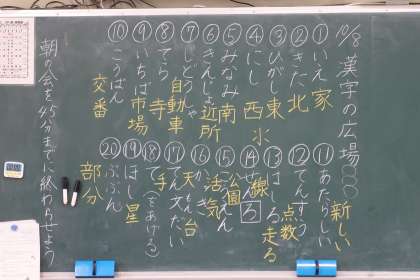 10/8 漢字の広場
①いえ 家
②きた 北
③ひがし 東
④にし 西
⑤みなみ 南
⑥きんじょ 近所
⑦じどうしゃ 自動車
⑧てら 寺
⑨いちば 市場
⑩こうばん 交番
⑪あたらしい 新しい
⑫てんすう 点数
⑬はしる 走る
⑭せん 線
⑮こうえん 公園
⑯かっき 活気
⑰てんもんだい 天文台
⑱て(をあげる) 手
⑲ほし 星
⑳ぶぶん 部分
朝の会を45分までに終わらせよう